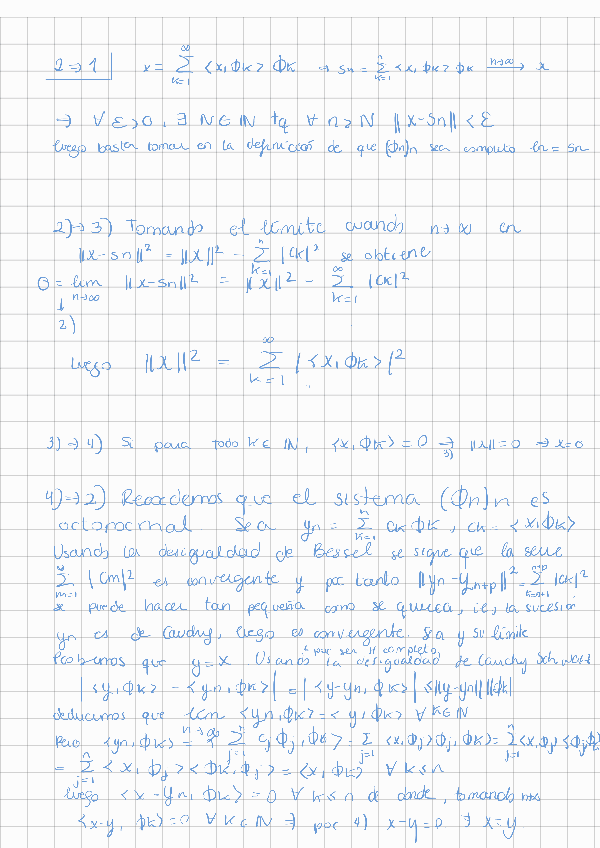 2 ⇒ 1 x = ∑_{k=1}^{∞} <x, ϕk> ϕk → Sn = ∑_{k=1}^{n} <x, ϕk> ϕk →^{n→∞} x
→ ∀ ε > 0, ∃ N ∈ IN tq ∀ n ≥ N ||x - Sn|| < ε
luego basta tomar en la definición de que (ϕn)n sea completo ln = sn
2) → 3) Tomando el límite cuando n→∞ en
||x - sn||² = ||x||² - ∑_{k=1}^{n} |ck|² se obtiene
0 = lim_{n→∞} ||x - sn||² = ||x||² - ∑_{k=1}^{∞} |ck|²
↓
2)
luego ||x||² = ∑_{k=1}^{∞} |<x, ϕk>|²
3) → 4) Si para todo k ∈ IN, <x, ϕk> = 0 ⇒_{3)} ||x|| = 0 ⇒ x = 0
4) → 2) Recordemos que el sistema (ϕn)n es
octopocmal Sea yn = ∑_{k=1}^{n} ck ϕk, ck = <x, ϕk>
Usando la desigualdad de Bessel se sigue que la serie
∑_{m=1}^{∞} |Cm|² es convergente y por tanto ||yn - yn+p||² = ∑_{k=n+1}^{n+p} |ck|²
se puede hacer tan pequeña como se quiera, ie, la sucesión
yn es de Cauchy, luego es convergente. Sea y su límite
↑ por ser H completo
Probemos que y = x Usando la desigualdad de Cauchy Schwarz
|<y, ϕk> - <yn, ϕk>| = |<y - yn, ϕk>| ≤ ||y - yn|| ||ϕk||
deducimos que lim_{n→∞} <yn, ϕk> = <y, ϕk> ∀ k ∈ IN
Pero <yn, ϕk> = <∑_{j=1}^{n} cj ϕj, ϕk> = ∑_{j=1}^{n} <x, ϕj> ϕj, ϕk> = ∑_{j=1}^{n} <x, ϕj> <ϕj, ϕk>
= ∑_{j=1}^{n} <x, ϕj> <ϕk, ϕj> = <x, ϕk> ∀ k ≤ n
luego <x - yn, ϕk> = 0 ∀ k ≤ n de donde, tomando
<x - y, ϕk> = 0 ∀ k ∈ IN ⇒ por 4) x - y = 0 ⇒ x = y